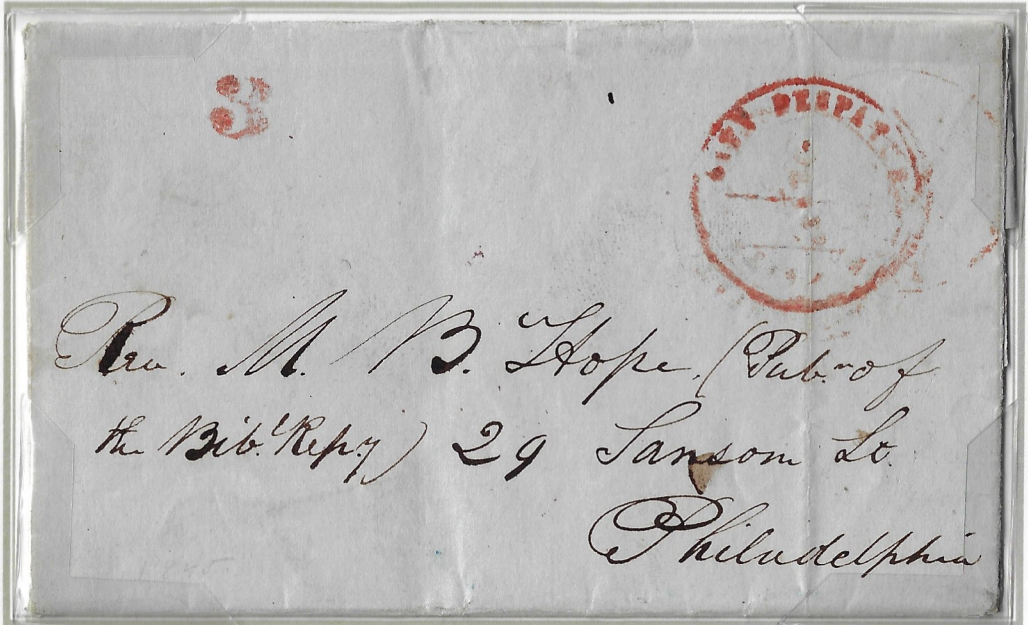 3
CITY DESPATCH
Rev. M. B. Hope, (Pubr. of
the Bibl. Repy) 29 Sansom St.
Philadelphia